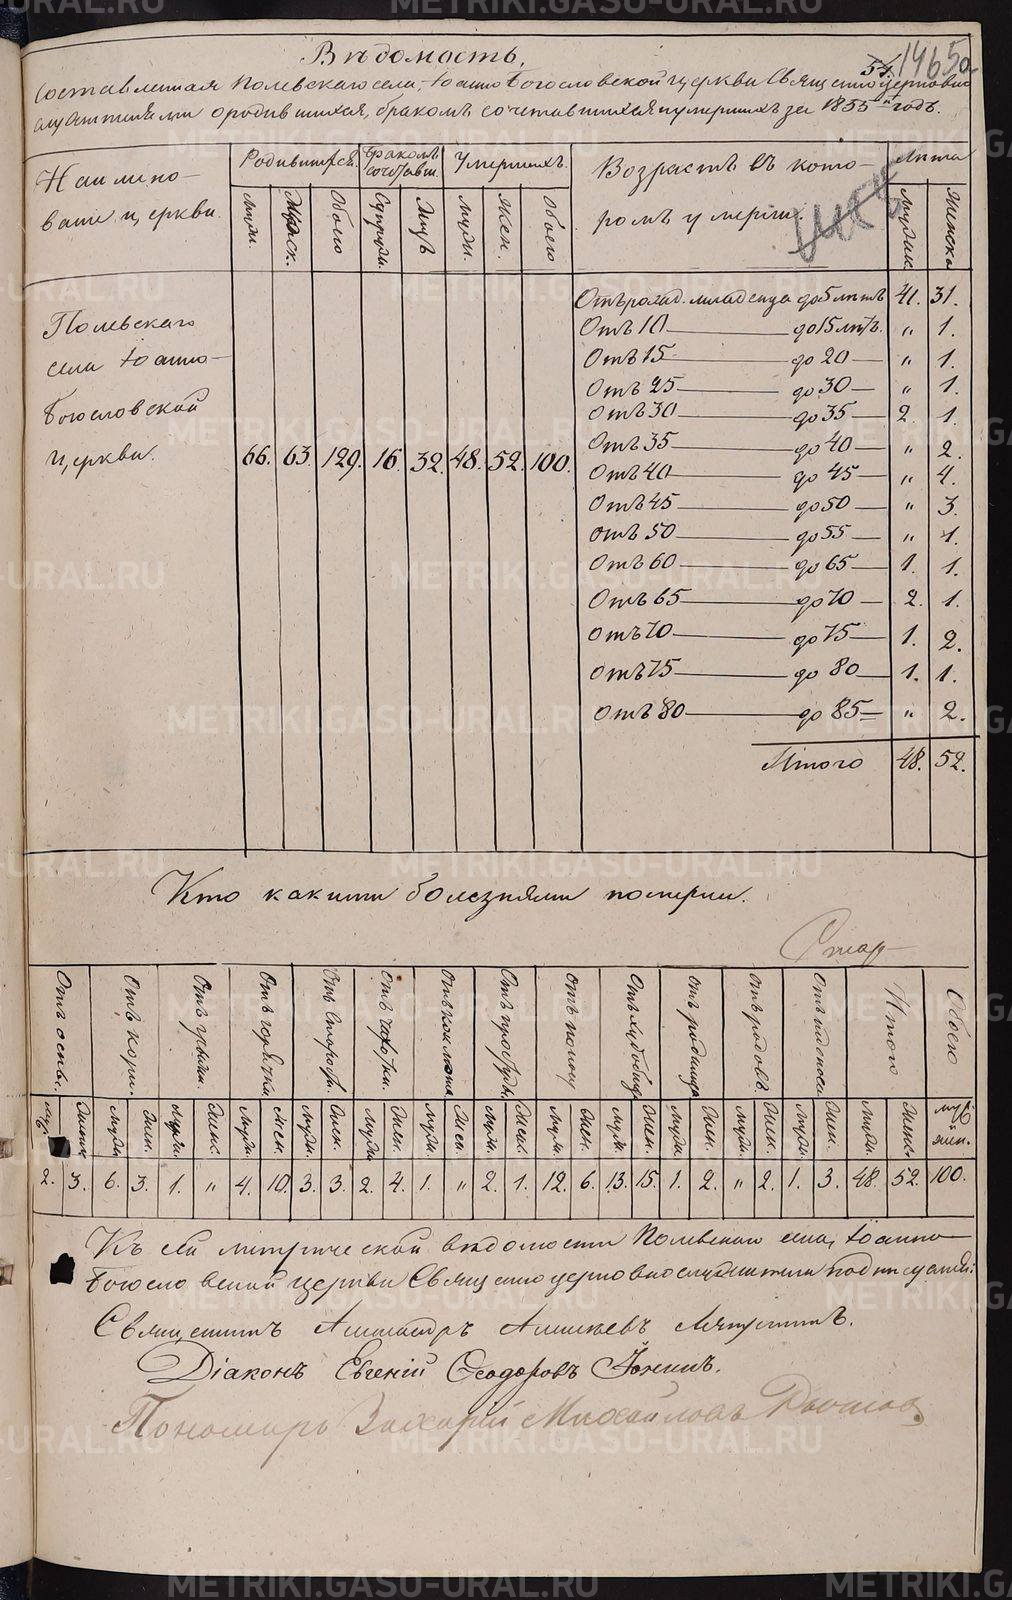 Вѣдомость,
54. 1465
составленная Полевскаго села, Іоанно Богословской церкви Священноцерковно
служителями о родившихся, бракомъ сочетавшихся и умершихъ за 1855й годъ.
Наимено-
ваніе церкви.
Родившихся.
Бракомъ сочетавш.
Умершихъ.
Возрастъ въ кото-
ромъ умерли.
Лѣта
Мужи.
Женск.
Обоего
Супруж.
Лицъ
Мужи.
Жен.
Обоего
Мужик.
Женска
Полевскаго
села Іоанно-
Богословской
церкви.
66. 63. 129. 16. 32. 48. 52. 100.
Отъ рожд. младенца до 5 лѣтъ 41. 31.
Отъ 10 — до 15 лѣтъ. „ 1.
Отъ 15 — до 20 — „ 1.
Отъ 25 — до 30 — „ 1.
Отъ 30 — до 35 — 2. 1.
Отъ 35 — до 40 — „ 2.
Отъ 40 — до 45 — „ 4.
Отъ 45 — до 50 — „ 3.
отъ 50 — до 55 — „ 1.
Отъ 60 — до 65 — 1. 1.
Отъ 65 — до 70 — 2. 1.
Отъ 70 — до 75 — 1. 2.
Отъ 75 — до 80 — 1. 1.
Отъ 80 — до 85 — „ 2.
Итого 48. 52.
Кто какими болезнями померли.
Отъ оспы.
Отъ кори.
Отъ горячки
Отъ старости.
Отъ чахотки.
Отъ простуды.
отъ поносу
отъ родимца
отъ родовъ.
Итого
Обоего
муж. жен. Мужи Жен. Мужи. Женс. Мужи. Жен. Мужи. Жен. Мужи Жен. Мужи. Жен. Муж. Жен. Муж. Жен. Муж. Жен. Мужи. Жен. Муж. Жен. Мужи. Жен. Мужи. Женс. муж. жен.
2. 3. 6. 3. 1. „ 4. 10. 3. 3. 2. 4. 1. „ 2. 1. 12. 6. 13. 15. 1. 2. „ 2. 1. 3. 48. 52. 100.
Къ сей метрической вѣдомости Полевскаго села, Іоанно-
Богословской церкви Священноцерковнослужители подписуемся:
Священникъ Александръ
Діаконъ Евгеній Ѳеодоровъ Іонинъ.
Пономарь Захарій Михайловъ
METRIKI.GASO-URAL.RU